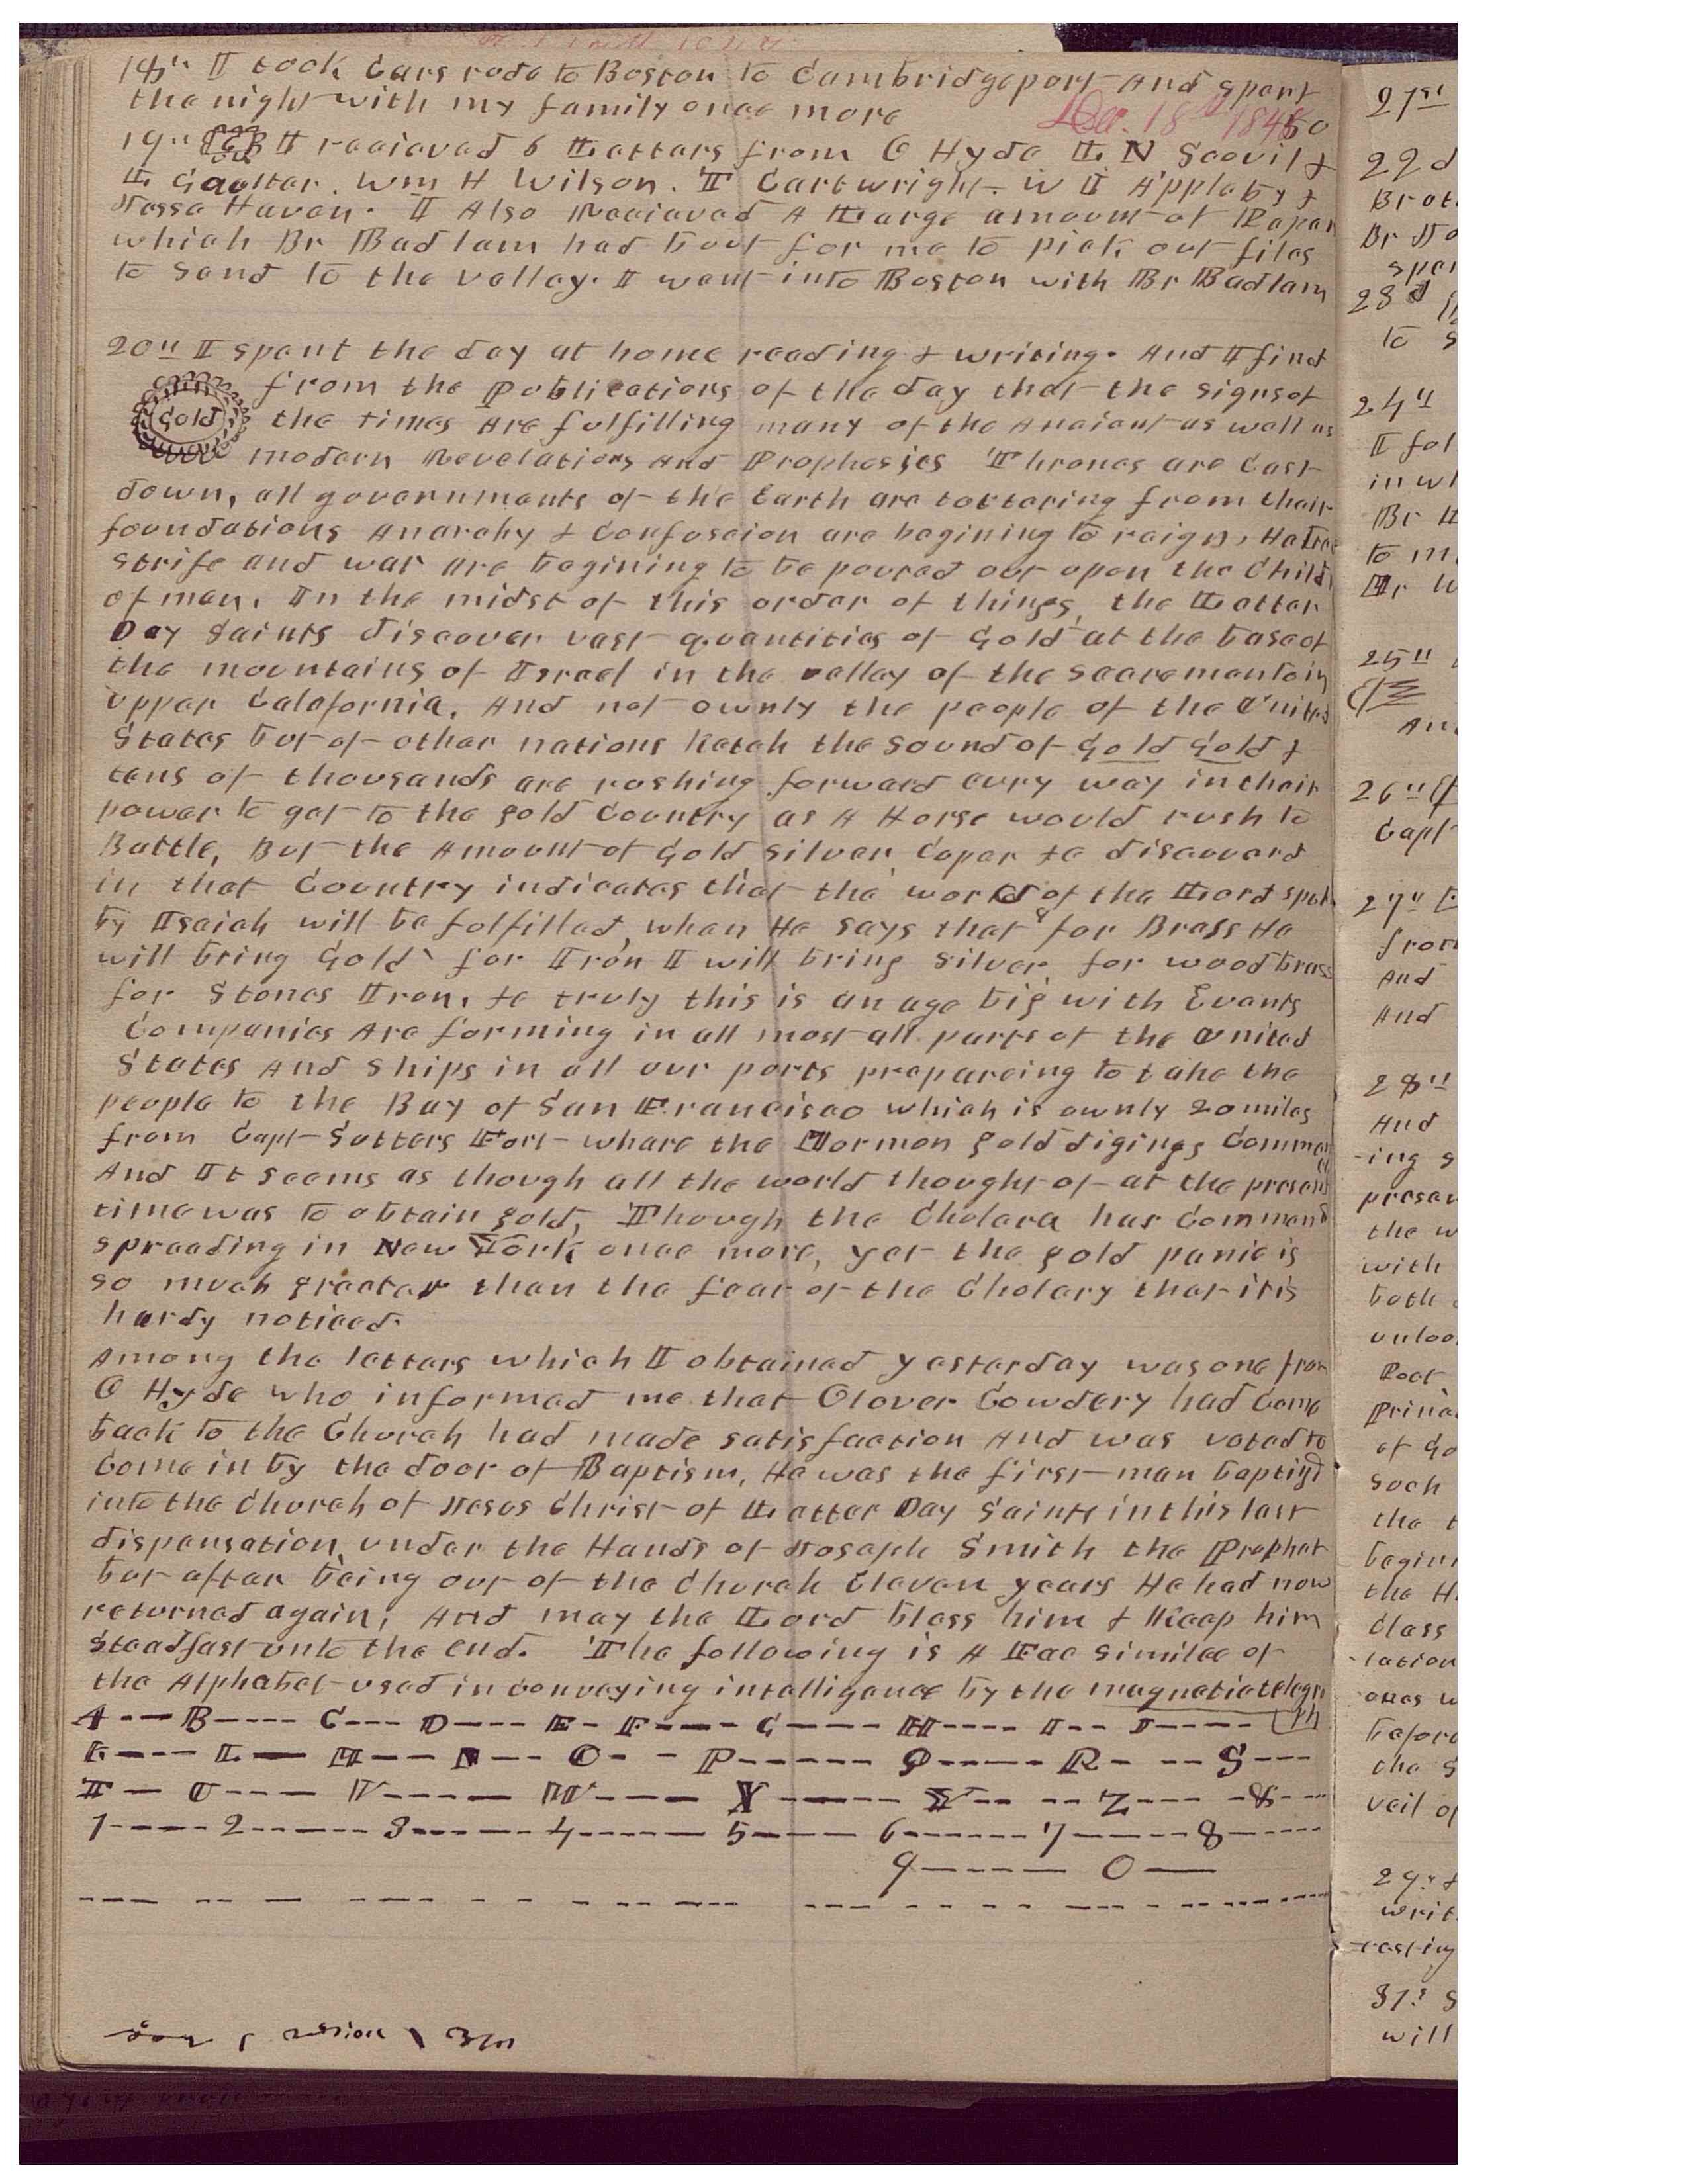 18th I took Cars rode to Boston to Cambridgeport And spent
the night with my family once more
Dec. 18th 1848
150
19th I recieved 6 Letters from O Hyde L N Scovil &
L Coulter. Wm H Wilson. T Cartwright. W I Appleby &
Jesse Haven. I Also Recieved A Large amount of Paper
which Br Badlam had bout for me to pick out files
to send to the valley. I went into Boston with Br Badlam
20th I spent the day at home reading & writing. And I find
from the Publications of the day that the signs of
Gold
the times Are fulfilling many of the Ancient as well as
modern Revelations And Prophesies Thrones are Cast
down, all governments of the Earth are tottering from their
foundations Anarchy & Confuscion are begining to reign, Hatred
strife and war are begining to be poured out upon the Child
of men. In the midst of this order of things, the Latter
Day Saints discover vast quantities of Gold at the base of
the mountains of Israel in the valley of the Saccremento in
upper Calafornia, And not ownly the people of the United
States but of other nations Ketch the sound of Gold Gold &
tens of thousands are rushing forward evry way in their
power to get to the gold Country as A Horse would rush to
Battle, But the Amount of Gold Silver Coper &c discoverd
in that Country indicates that the word of the Lord spok
by Isaiah will be fulfilled, when He says that "for Brass He
will bring Gold" for Iron I will bring Silver for wood brass
for Stones Iron, &c truly this is an age big with Events
Companies Are forming in all most all parts of the United
States And Ships in all our ports prepareing to take the
people to the Bay of San Francisco which is ownly 20 miles
from Capt Sutters Fort whare the Mormon gold digings Commen
And It seems as though all the world thought of at the present
time was to obtain gold, Though the Cholera has Commend
spreading in New York once more, yet the gold panic is
so much greater than the fear of the Cholery that it is
hardy noticed.
Among the letters which I obtained yesterday was one from
O Hyde who informed me that Olover Cowdery had Come
back to the Church had made satisfaction And was voted to
Come in by the door of Baptism, He was the first man baptizd
into the Church of Jesus Christ of Latter Day Saints in this last
dispensation under the Hands of Joseph Smith the Prophet
but after being out of the Church Eleven years He had now
returned again, And may the Lord bless him & Keep him
steadfast unto the end. The following is A Fac similee of
the Alphabet used in conveying intelligence by the magnetic telegra
ph
A - — B — - - - C - - - D — - - E - F - — - G — — - H - - - - I - - J — - — -
K — - — L — M — — N — - O - - P - - - - - Q - - — - R - - - S - - -
T — U - - — V - - - — W - — — X - — - - Y - - - - Z - - - - & - - - -
1 - — — - 2 - - — - - 3 - - - — - 4 - - - - — 5 — — — 6 - - - - - - 7 — — - - 8 — - - - -
9 — - - — 0 —
21st
22d
Brot
Br
spen
23d
to
24th
I fol
in wh
Br
to m
25th
An
26th
Capt
27th
from
And
And
28th
And
-ing s
presen
the w
with
both
unloo
Poet
Princ
of Go
Such
the t
begin
the H
Class
-lation
ones w
before
the S
veil of
29th
writ
-resting
31st S
will